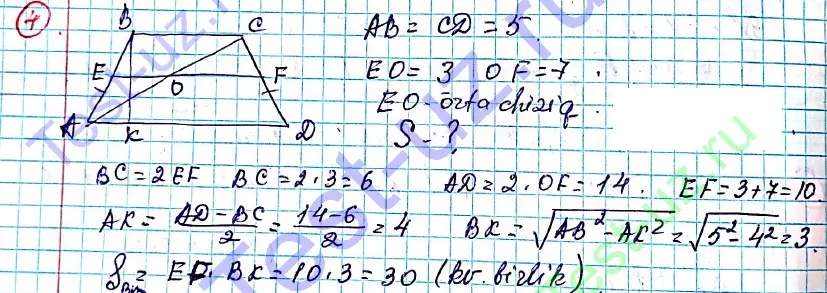 7
B C
AB = CD = 5
E O F
EO = 3 OF = 7
EO - o'rta chiziq
A K D
S - ?
BC = 2EF BC = 2·3 = 6 AD = 2·OF = 14. EF = 3+7 = 10.
AK = (AD - BC)/2 = (14-6)/2 = 4 BK = √(AB² - AK²) = √(5² - 4²) = 3.
= EF · BK = 10·3 = 30 (kv. birlik)
Test-uz.ru
Test-uz.ru